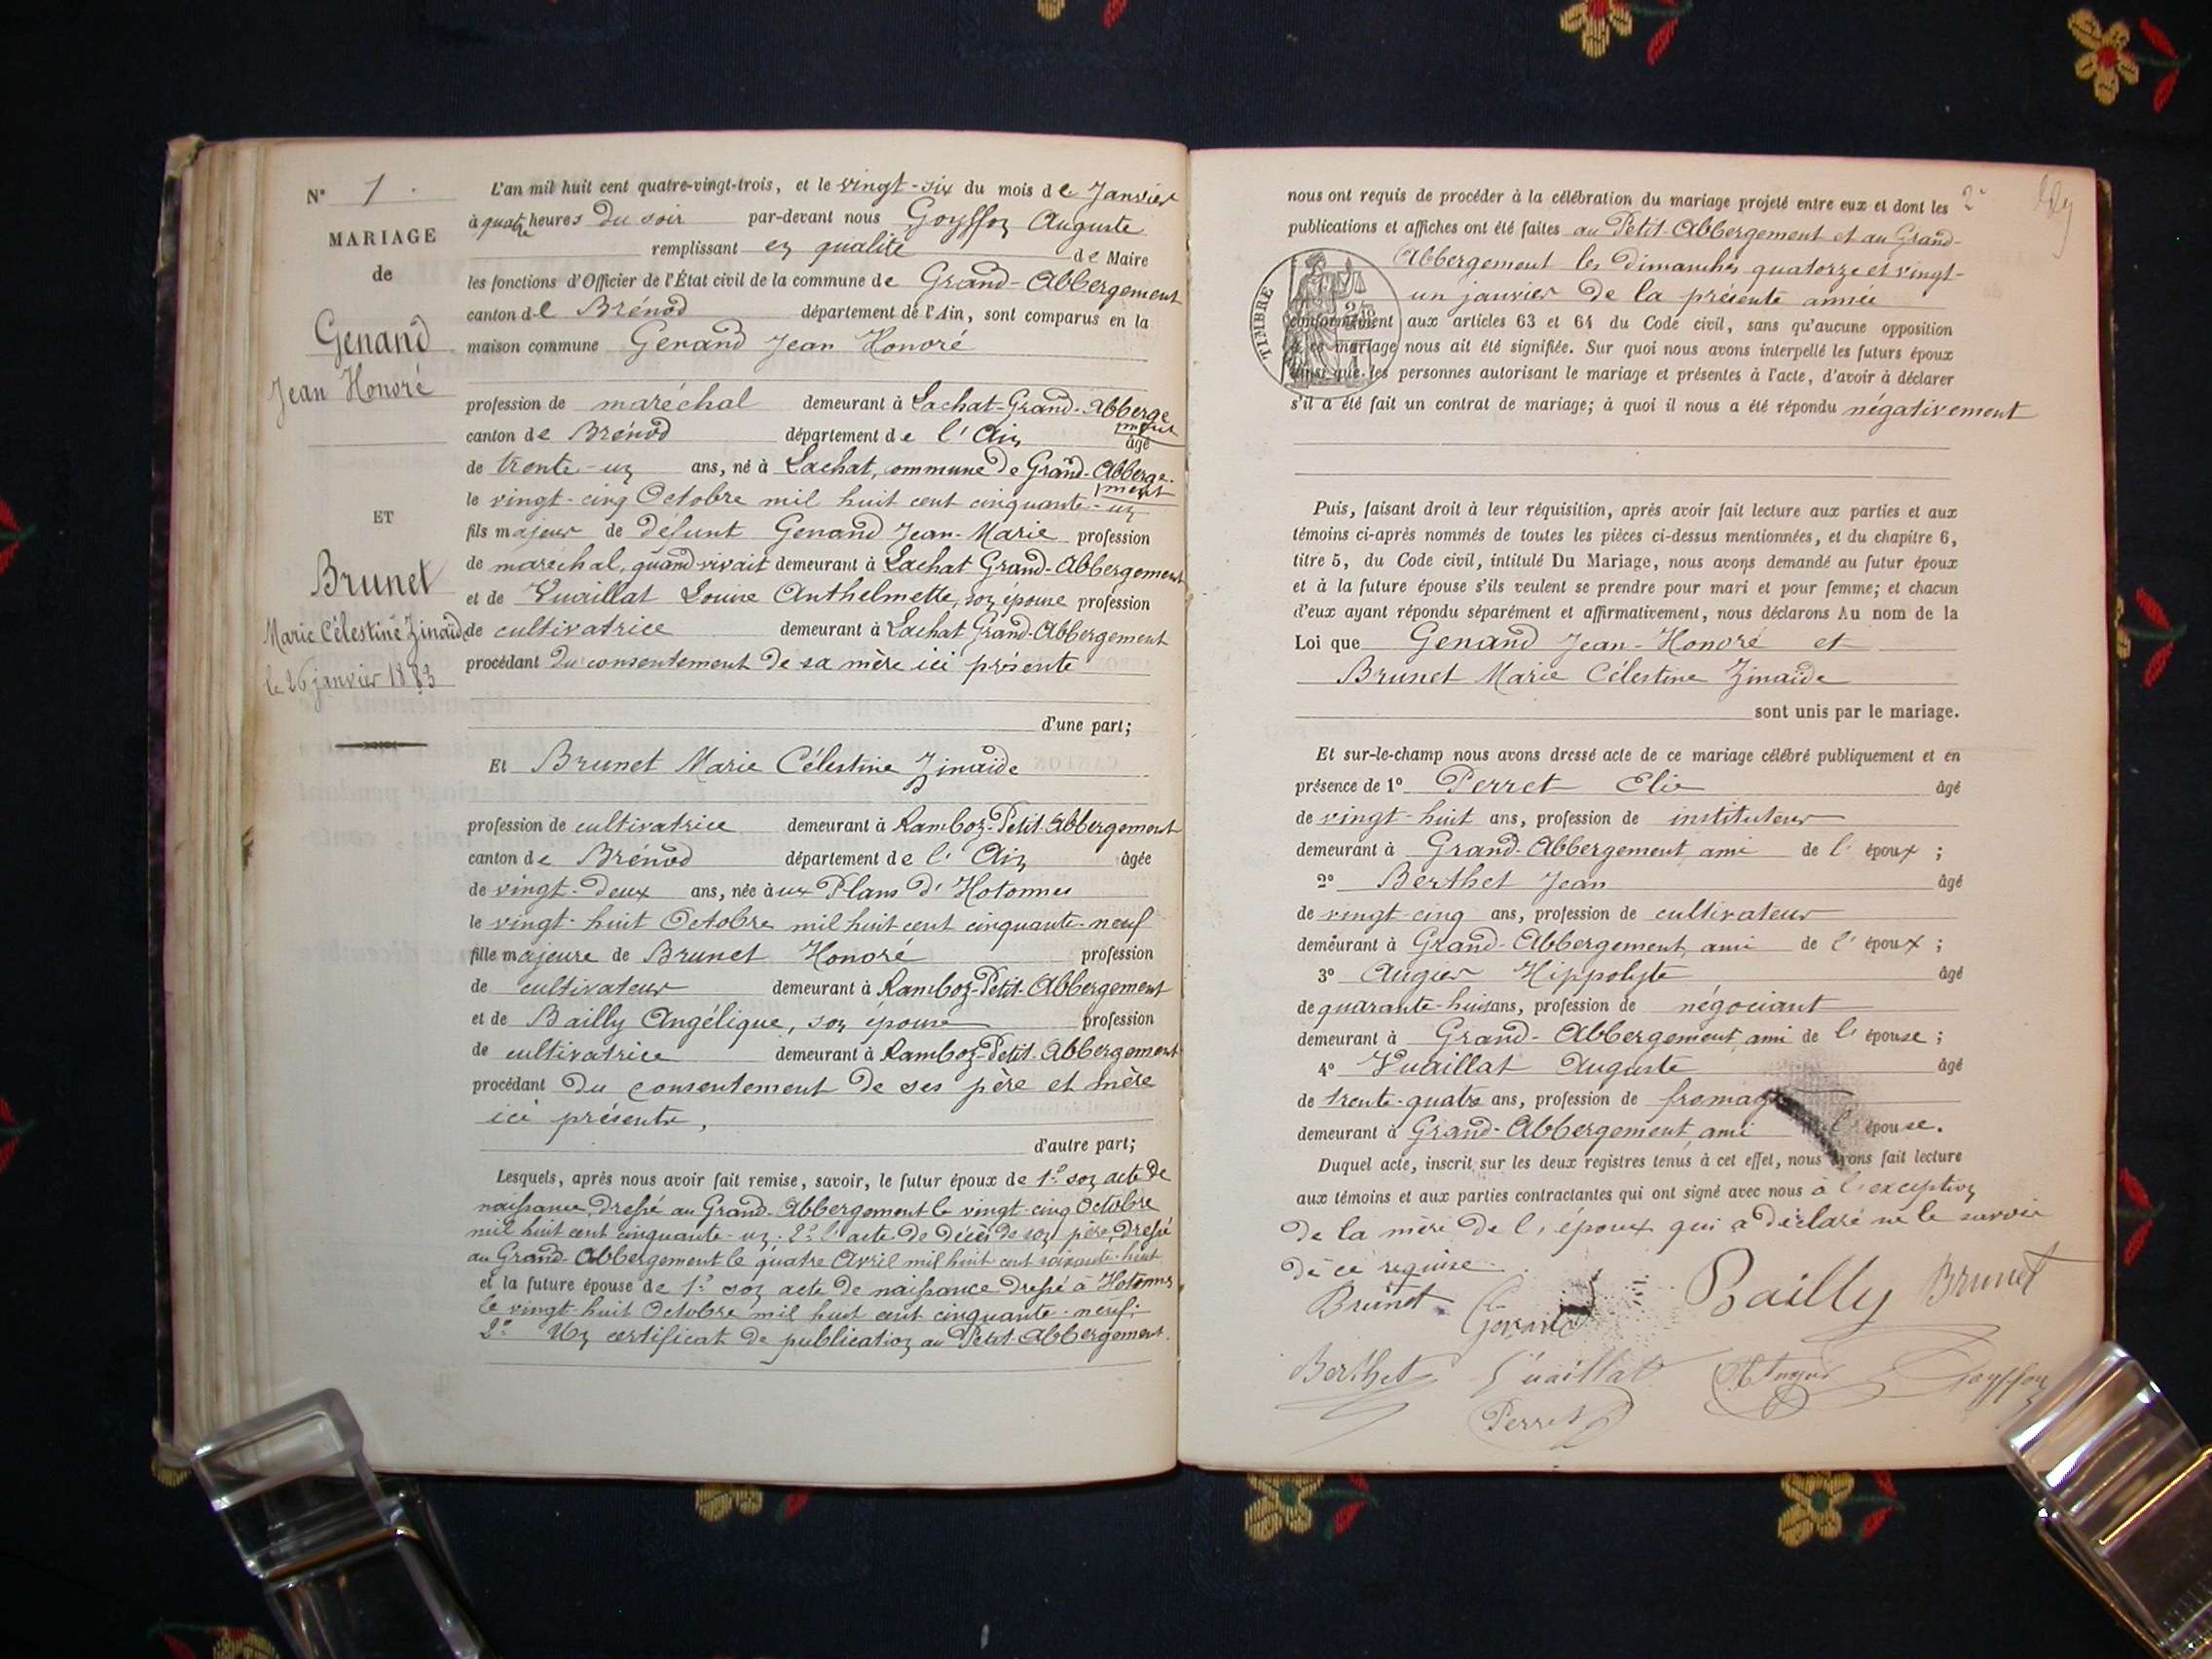 N° 1.
MARIAGE
de
Genand
Jean Honoré
ET
Brunet
Marie Célestine Zinaïde
le 26 janvier 1883
L'an mil huit cent quatre-vingt-trois, et le vingt-six du mois de Janvier
à quatre heures du soir par-devant nous Goyffon Auguste
remplissant en qualité de Maire
les fonctions d'Officier de l'État civil de la commune de Grand-Abbergement
canton de Brénod département de l'Ain, sont comparus en la
maison commune Genand Jean Honoré
profession de maréchal demeurant à Lachat-Grand-Abberge
ment
canton de Brénod département de l'Ain âgé
de trente-un ans, né à Lachat, commune de Grand-Abberge-
ment
le vingt-cinq Octobre mil huit cent cinquante-un
fils majeur de défunt Genand Jean-Marie profession
de maréchal, quand vivait demeurant à Lachat Grand-Abbergement
et de Vuaillat Louise Anthelmette, son épouse profession
de cultivatrice demeurant à Lachat Grand-Abbergement
procédant du consentement de sa mère ici présente
d'une part;
Et Brunet Marie Célestine Zinaïde
profession de cultivatrice demeurant à Ramboz-Petit-Abbergement
canton de Brénod département de l'Ain âgée
de vingt-deux ans, née à ux Plans d'Hotonnes
le vingt-huit Octobre mil huit cent cinquante-neuf
fille majeure de Brunet Honoré profession
de cultivateur demeurant à Ramboz-Petit-Abbergement
et de Bailly Angélique, son épouse profession
de cultivatrice demeurant à Ramboz-Petit-Abbergement
procédant du consentement de ses père et mère
ici présents,
d'autre part;
Lesquels, après nous avoir fait remise, savoir, le futur époux de 1° son acte de
naissance dressé au Grand-Abbergement le vingt-cinq Octobre
mil huit cent cinquante-un. 2° l'acte de décès de son père, dressé
au Grand-Abbergement le quatre Avril mil huit cent soixante-huit
et la future épouse de 1° son acte de naissance dressé à Hotonnes
le vingt-huit Octobre mil huit cent cinquante-neuf.
2° Un certificat de publication au Petit-Abbergement.
2e
nous ont requis de procéder à la célébration du mariage projeté entre eux et dont les
publications et affiches ont été faites au Petit-Abbergement et au Grand-
Abbergement les dimanches quatorze et vingt-
un janvier de la présente année
TIMBRE
conformément aux articles 63 et 64 du Code civil, sans qu'aucune opposition
à ce mariage nous ait été signifiée. Sur quoi nous avons interpellé les futurs époux
ainsi que les personnes autorisant le mariage et présentes à l'acte, d'avoir à déclarer
s'il a été fait un contrat de mariage; à quoi il nous a été répondu négativement
Puis, faisant droit à leur réquisition, après avoir fait lecture aux parties et aux
témoins ci-après nommés de toutes les pièces ci-dessus mentionnées, et du chapitre 6,
titre 5, du Code civil, intitulé Du Mariage, nous avons demandé au futur époux
et à la future épouse s'ils veulent se prendre pour mari et pour femme; et chacun
d'eux ayant répondu séparément et affirmativement, nous déclarons Au nom de la
Loi que Genand Jean-Honoré et
Brunet Marie Célestine Zinaïde
sont unis par le mariage.
Et sur-le-champ nous avons dressé acte de ce mariage célébré publiquement et en
présence de 1° Perret Elie âgé
de vingt-huit ans, profession de instituteur
demeurant à Grand-Abbergement, ami de l'époux;
2° Berthet Jean âgé
de vingt-cinq ans, profession de cultivateur
demeurant à Grand-Abbergement, ami de l'époux;
3° Augier Hippolyte âgé
de quarante-huit ans, profession de négociant
demeurant à Grand-Abbergement, ami de l'épouse;
4° Vuaillat Auguste âgé
de trente-quatre ans, profession de
demeurant à Grand-Abbergement, ami l'épouse.
Duquel acte, inscrit sur les deux registres tenus à cet effet, nous avons fait lecture
aux témoins et aux parties contractantes qui ont signé avec nous à l'exception
de la mère de l'époux qui a déclaré ne le savoir
de ce requise.
Brunet Genand Bailly Brunet
Berthet Vuaillat Goyffon
Perret